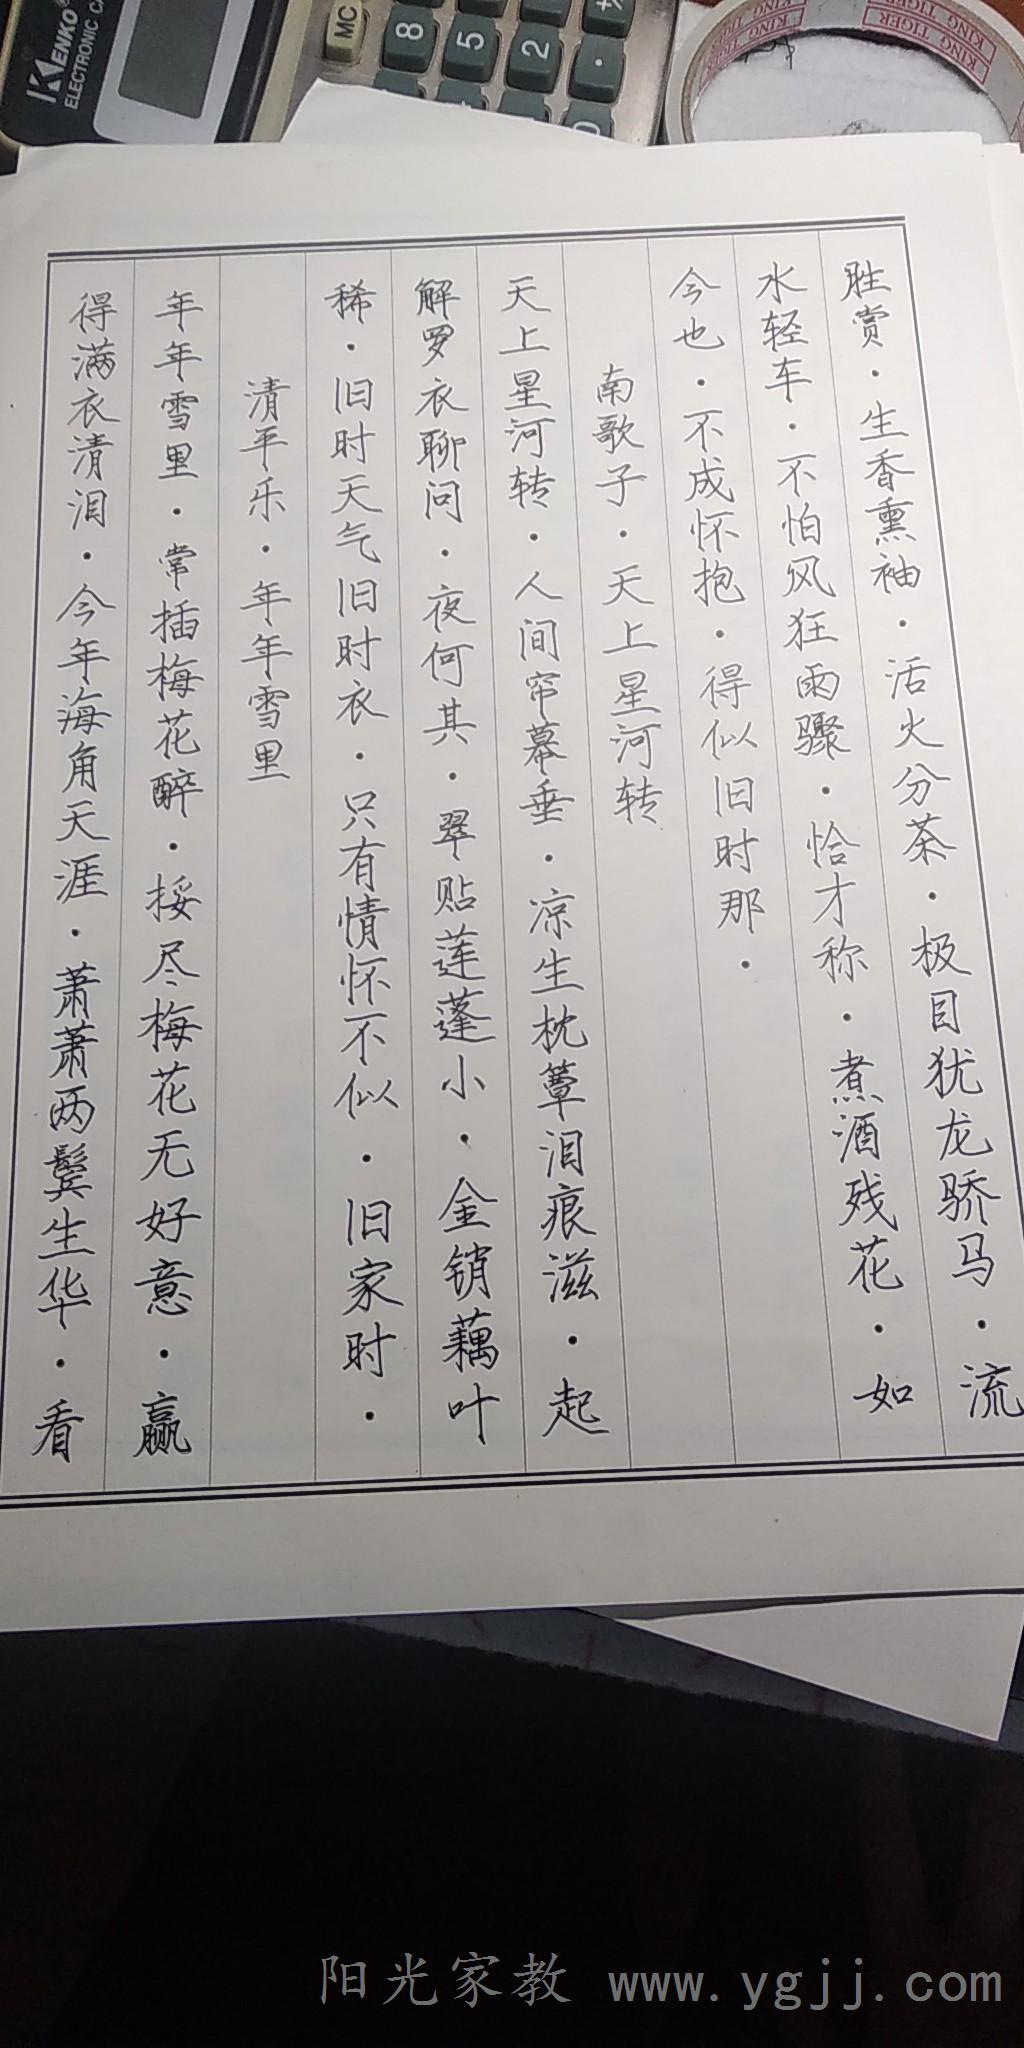 KENKO
ELECTRONIC CA
MC
8
5
2
KING TIGER
KING TIGER
KING TIGER
胜赏·生香熏袖·活火分茶·极目犹龙骄马·流
水轻车·不怕风狂雨骤·恰才称·煮酒残花·如
今也·不成怀抱·得似旧时那·
南歌子·天上星河转
天上星河转·人间帘幕垂·凉生枕簟泪痕滋·起
解罗衣聊问·夜何其·翠贴莲蓬小·金销藕叶
稀·旧时天气旧时衣·只有情怀不似·旧家时·
清平乐·年年雪里
年年雪里·常插梅花醉·挼尽梅花无好意·赢
得满衣清泪·今年海角天涯·萧萧两鬓生华·看
阳光家教 www.ygjj.com